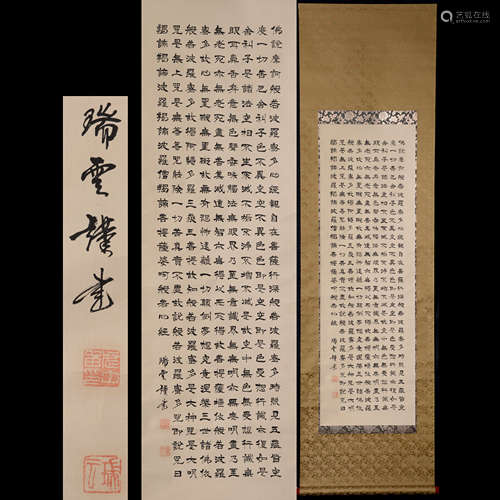 佛說摩訶般若波羅蜜多心經觀自在菩薩行深般若波羅蜜多時照見五蘊皆空
度一切苦厄舍利子色不異空空不異色色即是空空即是色受想行識亦復如是
舍利子是諸法空相不生不滅不垢不淨不增不減是故空中無色無受想行識無
眼耳鼻舌身意無色聲香味觸法無眼界乃至無意識界無無明亦無無明盡乃至
無老死亦無老死盡無苦集滅道無智亦無得以無所得故菩提薩埵依般若波羅
蜜多故心無罣礙無罣礙故無有恐怖遠離一切顛倒夢想究竟涅槃三世諸佛依
般若波羅蜜多故得阿耨多羅三藐三菩提故知般若波羅蜜多是大神咒是大明
咒是無上咒是無等等咒能除一切苦真實不虛故說般若波羅蜜多咒即說咒曰
揭諦揭諦波羅揭諦波羅僧揭諦菩提薩婆訶般若心經
瑞雲謹書
瑞雲謹書